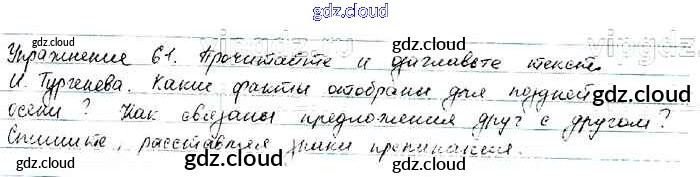 gdz.cloud
Упражнение 61. Прочитайте и озаглавьте текст
И. Тургенева. Какие факты отобраны для поздней
осени? Как связаны предложения друг с другом?
Спишите, расставляя знаки препинания.
gdz.cloud